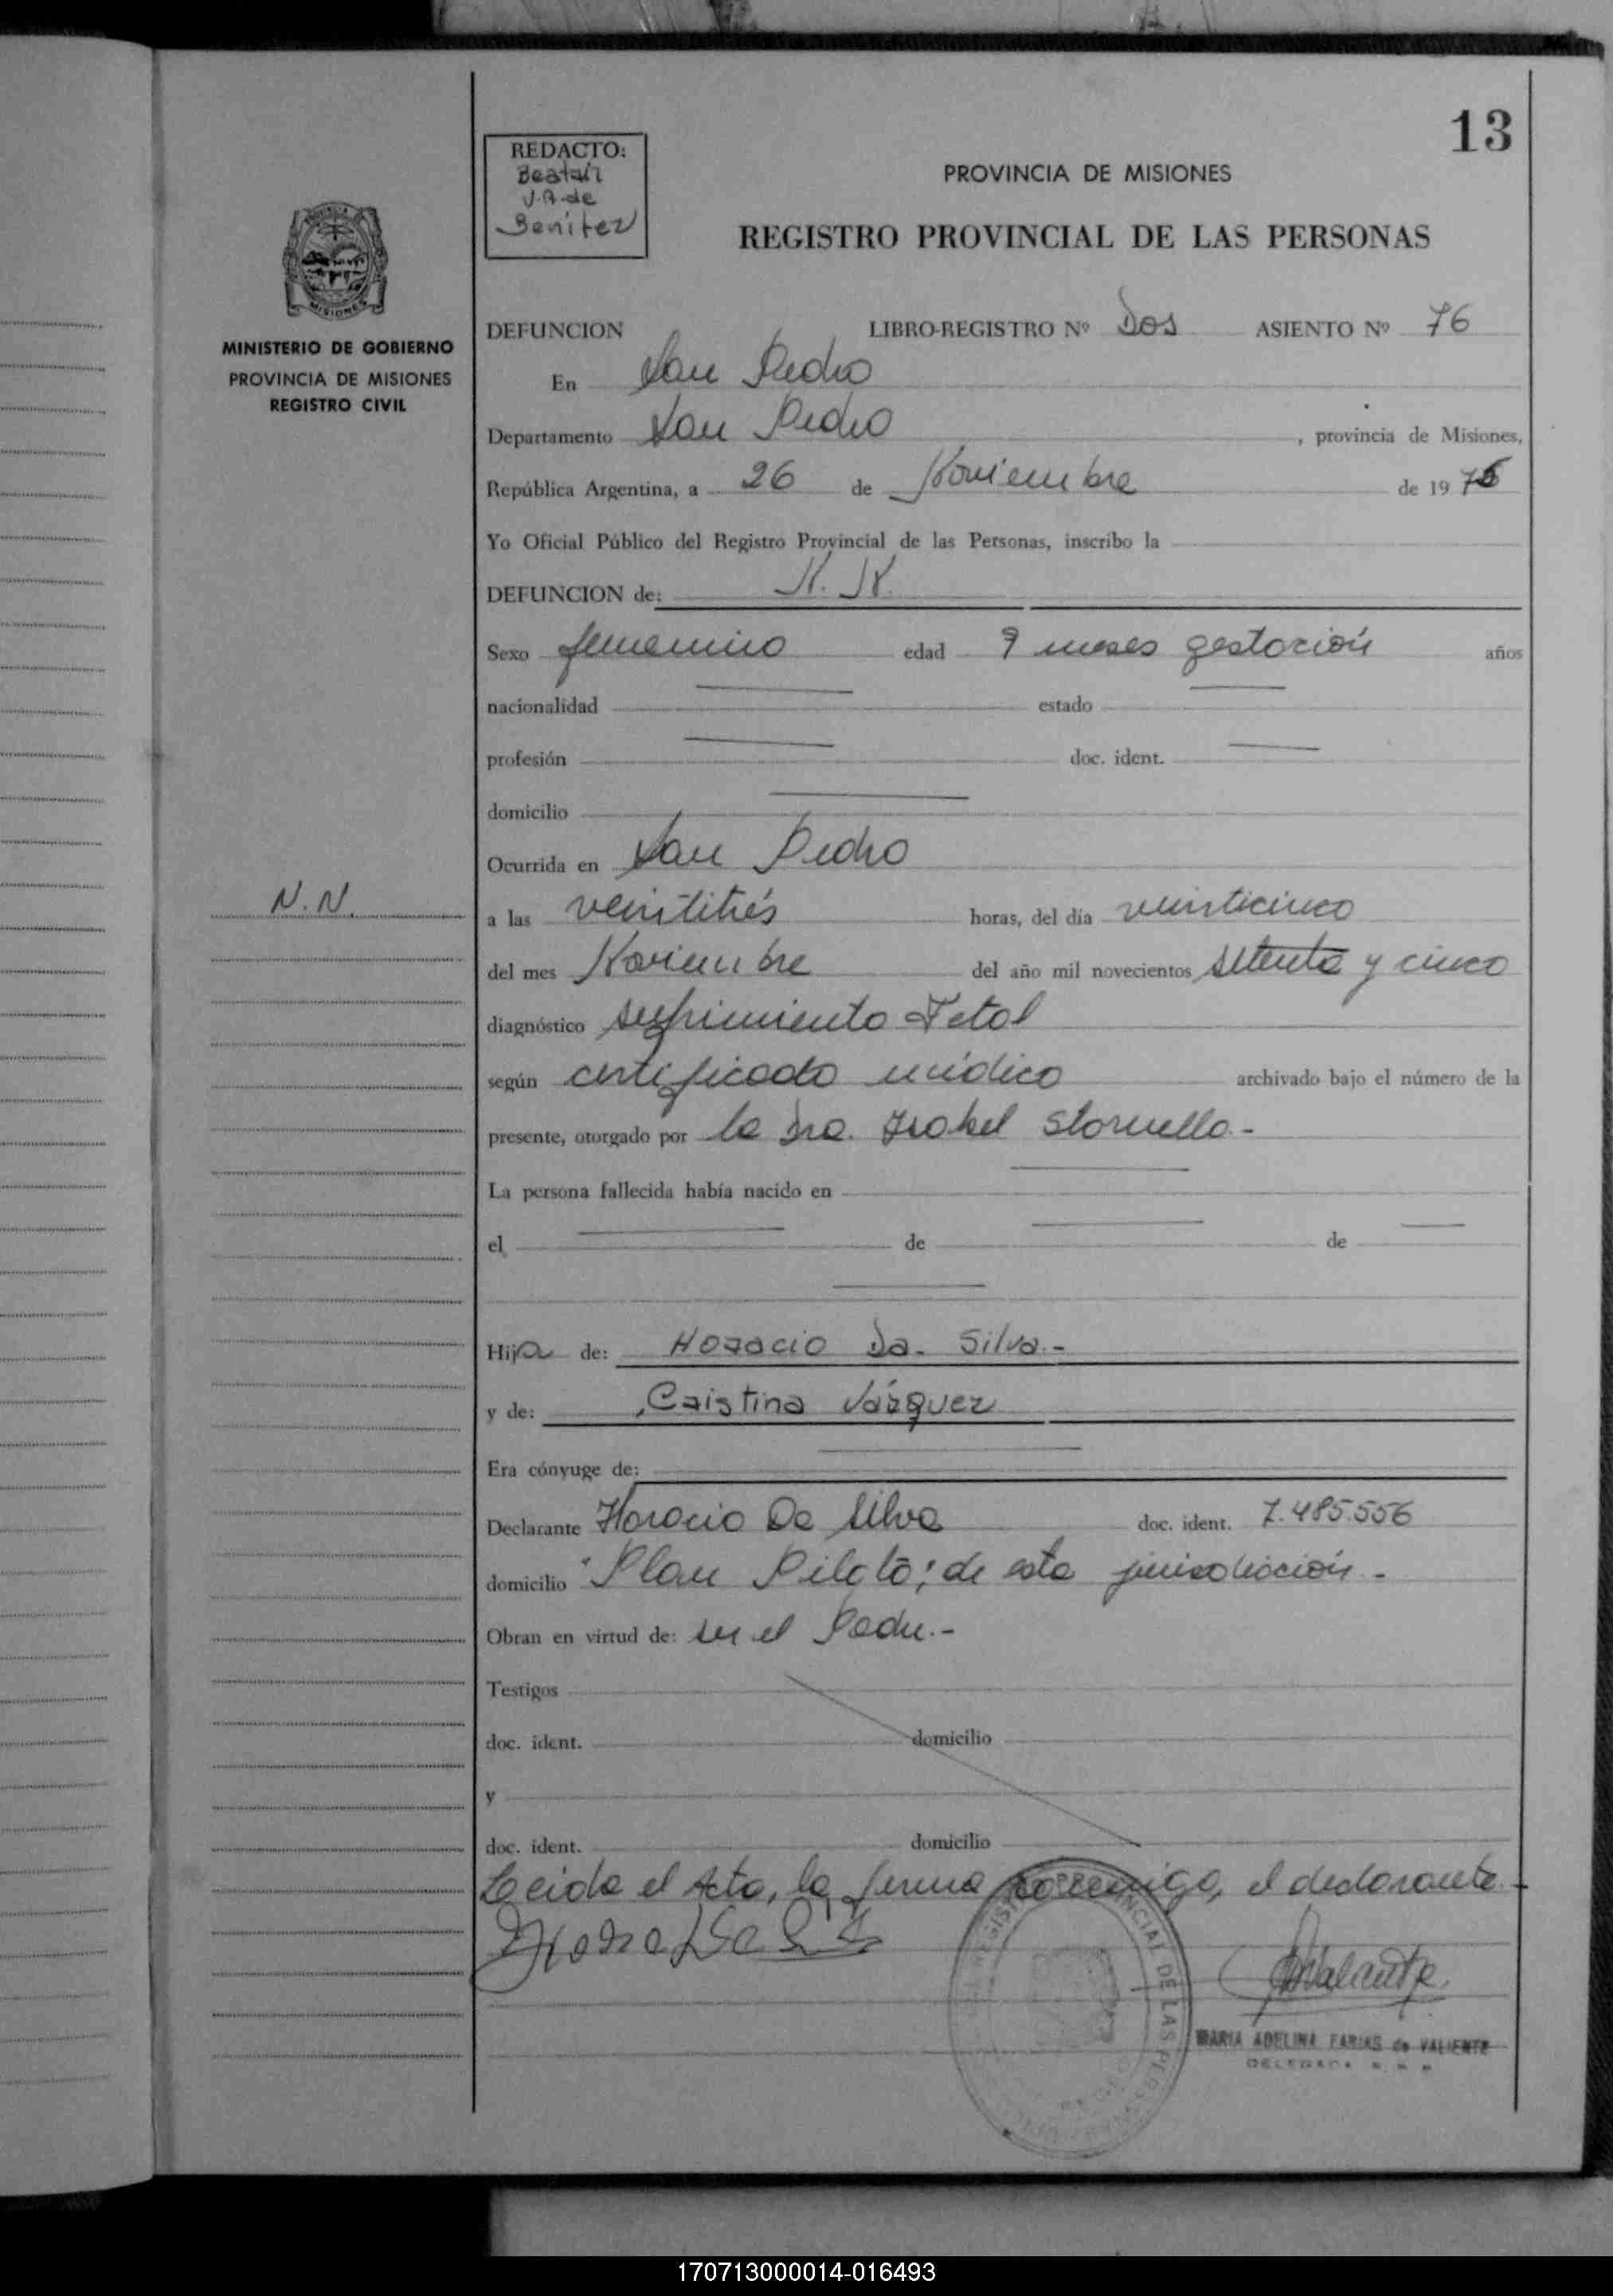 13
REDACTO:
Beatriz
V.A. de
Benítez
PROVINCIA DE MISIONES
REGISTRO PROVINCIAL DE LAS PERSONAS
MISIONES
MINISTERIO DE GOBIERNO
PROVINCIA DE MISIONES
REGISTRO CIVIL
DEFUNCION LIBRO-REGISTRO Nº Dos ASIENTO Nº 76
En San Pedro
Departamento San Pedro, provincia de Misiones,
República Argentina, a 26 de Noviembre de 19
Yo Oficial Público del Registro Provincial de las Personas, inscribo la
DEFUNCION de: N. N.
Sexo femenino edad 9 meses gestación años
nacionalidad estado
profesión doc. ident.
domicilio
Ocurrida en San Pedro
N.N.
a las veintitrés horas, del día veinticinco
del mes Noviembre del año mil novecientos setenta y cinco
diagnóstico sufrimiento Fetal
según certificado médico archivado bajo el número de la
presente, otorgado por la Dra. Isabel Stornello.-
La persona fallecida había nacido en
el de de
Hija de: Horacio Da. Silva.-
y de: Cristina Vázquez
Era cónyuge de:
Declarante Horacio Da Silva doc. ident. 7.485.556
domicilio "Plan Piloto; de esta jurisdicción.-
Obran en virtud de: ser el Padre.-
Testigos
doc. ident. domicilio
y
doc. ident. domicilio
Leida el Acta, la firma conmigo, el declarante.-
MARIA ADELINA FARIAS de VALIENTE
DELEGADA
170713000014-016493